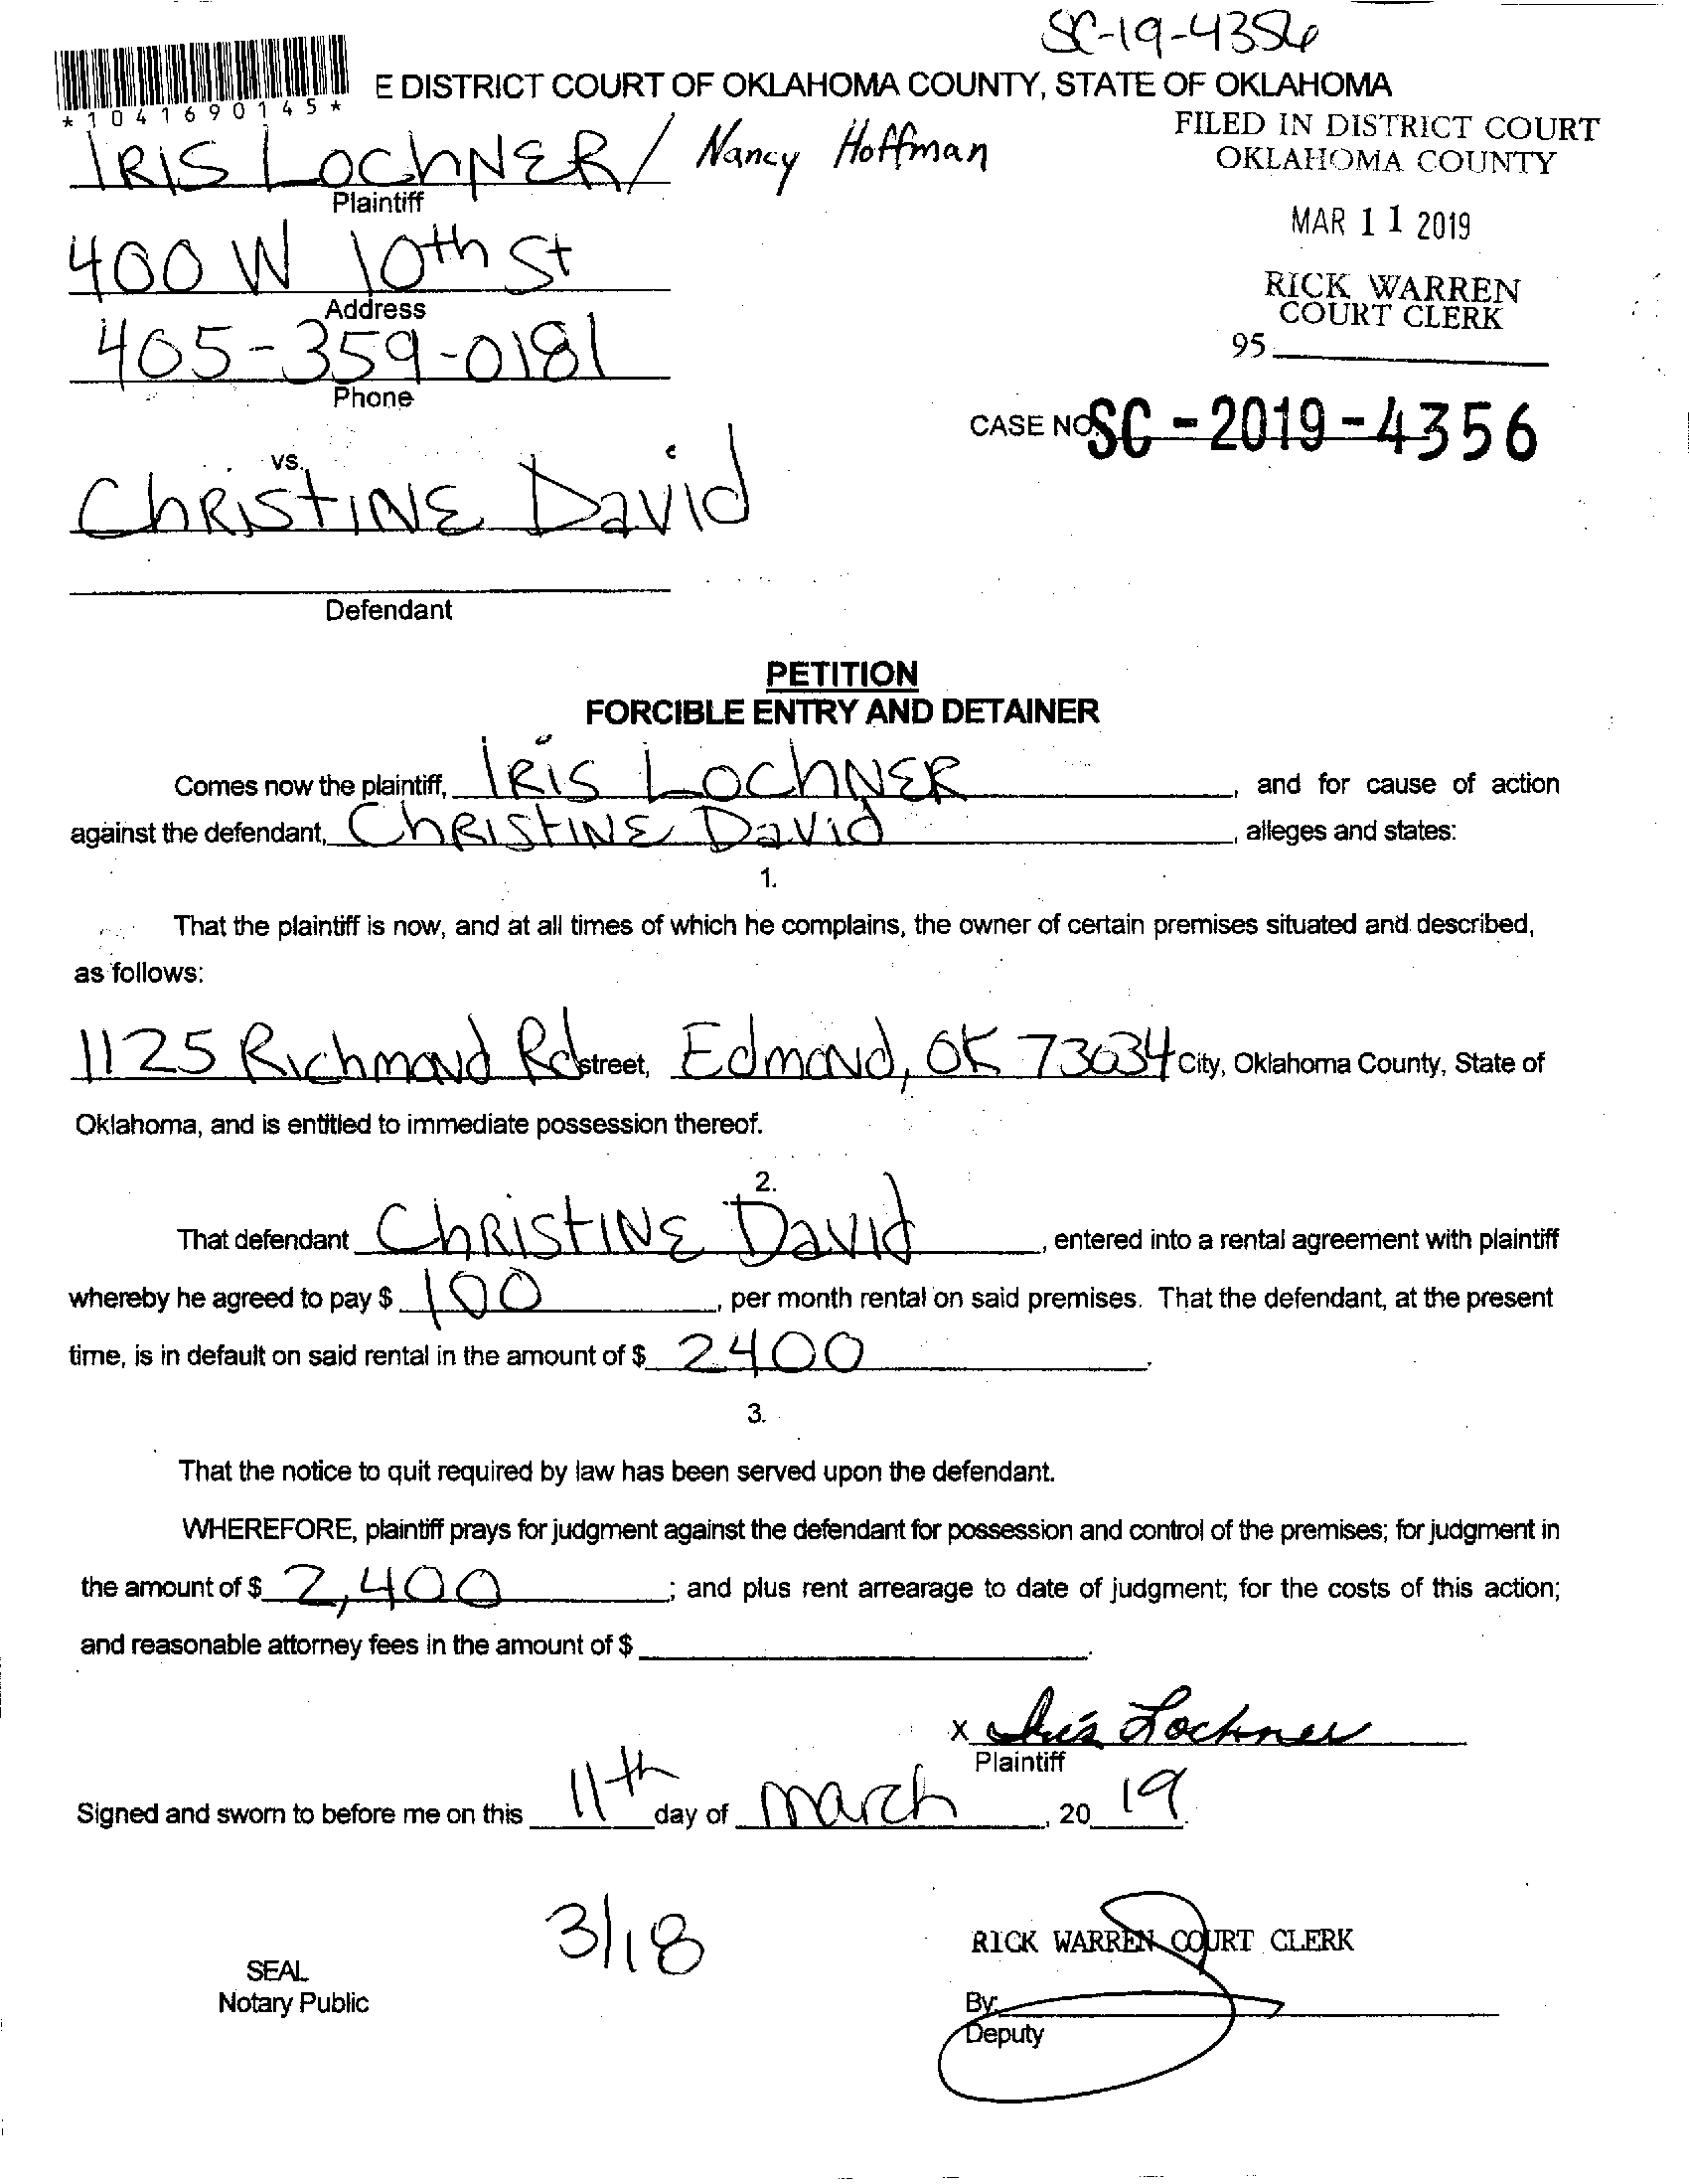 SC-19-4356
E DISTRICT COURT OF OKLAHOMA COUNTY, STATE OF OKLAHOMA
*1041690145*
FILED IN DISTRICT COURT
OKLAHOMA COUNTY
IRIS LOChNER / Nancy Hoffman
Plaintiff
MAR 11 2019
400 W 10th St
Address
RICK WARREN
COURT CLERK
405-359-0181
Phone
95
CASE NO. SC-2019-4356
vs.
ChRIStINE David
Defendant
PETITION
FORCIBLE ENTRY AND DETAINER
Comes now the plaintiff, IRIS LOChNER, and for cause of action
against the defendant, ChRIStINE David, alleges and states:
1.
That the plaintiff is now, and at all times of which he complains, the owner of certain premises situated and described,
as follows:
1125 Richmond Rd street, Edmond, OK 73034 City, Oklahoma County, State of
Oklahoma, and is entitled to immediate possession thereof.
2.
That defendant ChRIStINE David, entered into a rental agreement with plaintiff
whereby he agreed to pay $ 100, per month rental on said premises. That the defendant, at the present
time, is in default on said rental in the amount of $ 2400.
3.
That the notice to quit required by law has been served upon the defendant.
WHEREFORE, plaintiff prays for judgment against the defendant for possession and control of the premises; for judgment in
the amount of $ 2,400; and plus rent arrearage to date of judgment; for the costs of this action;
and reasonable attorney fees in the amount of $ .
x Iris Lochner
Plaintiff
Signed and sworn to before me on this 11th day of march, 20 19.
3/18
RICK WARREN COURT CLERK
SEAL
Notary Public
By:
Deputy